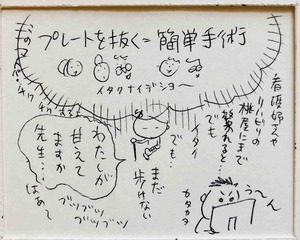 プレートを抜く=簡単手術
イタクナイデショ～
看護婦さんや
リハビリの
桃屋にまで
笑われると
でも
イタイ
でも‥
まだ
歩けない
わたしが
甘えて
ますか
先生‥‥
はあて
ブツブツ
ブツブツ
う～ん
カタカタ